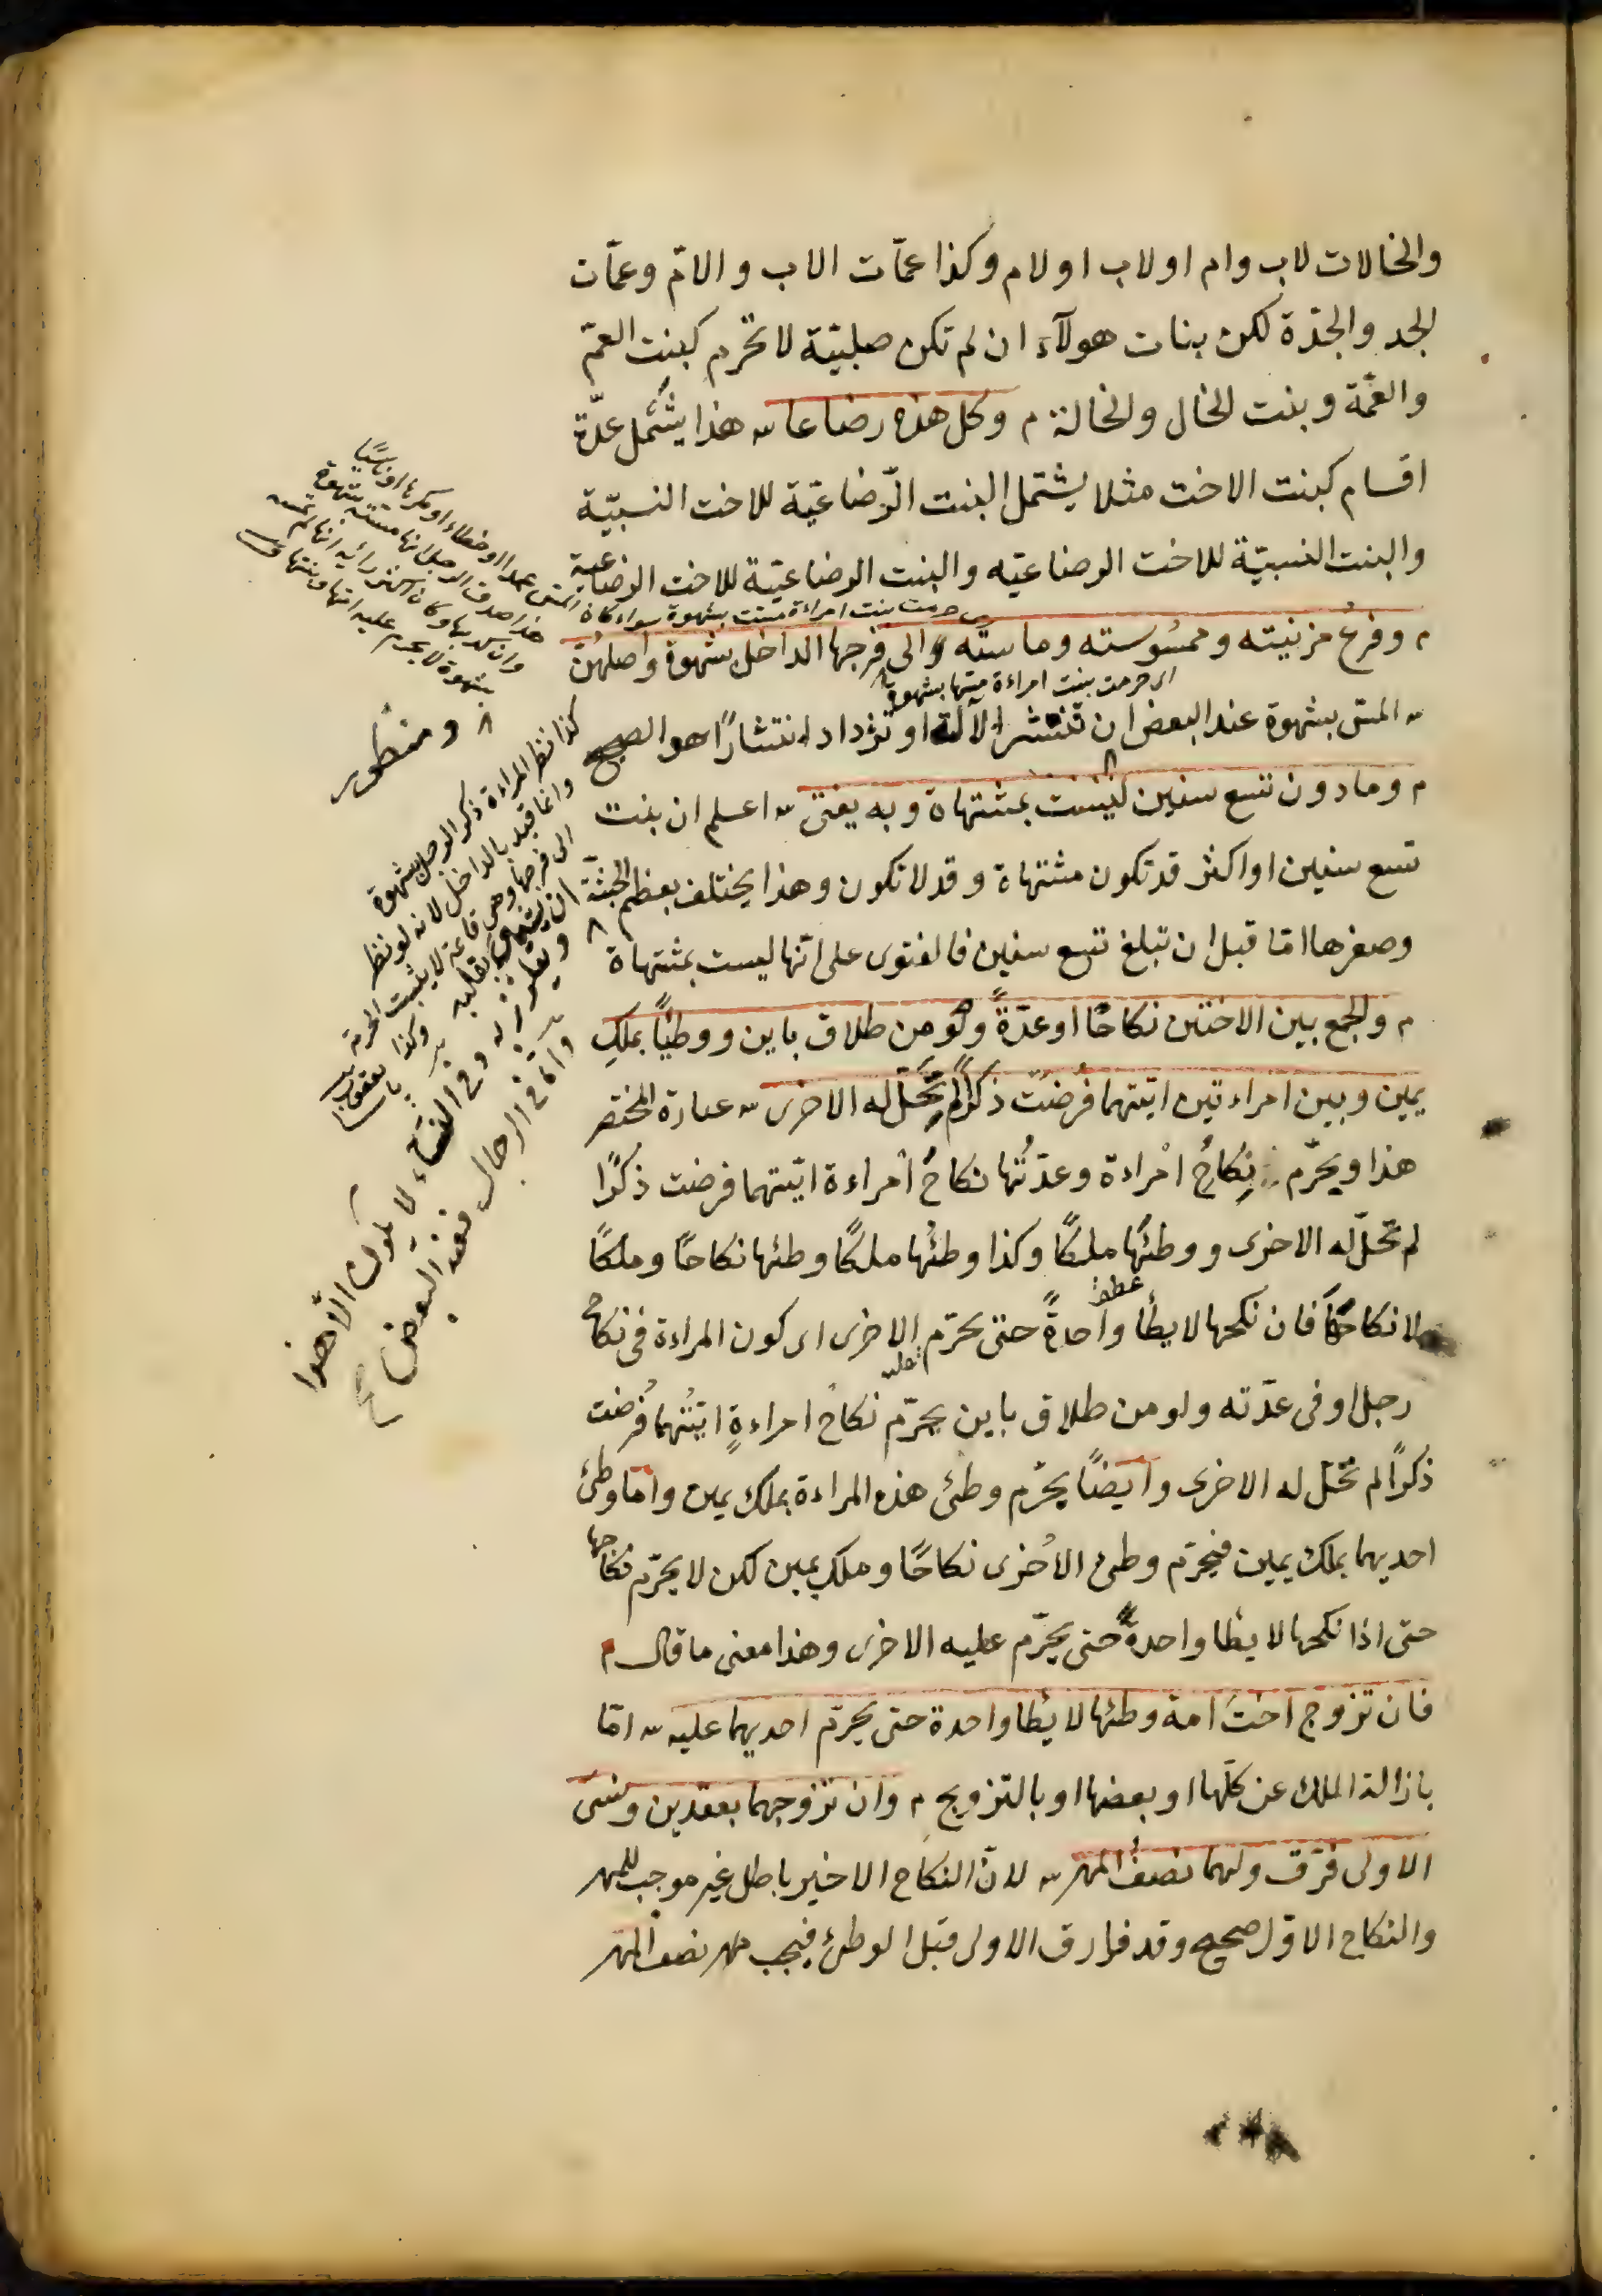 والخالات لاب وام او لاب او لام وكذا عمّات الاب والامّ وعمّات
الجد والجدّة لكن بنات هولآء ان لم تكن صلبيّة لا تحرم كبنت العمّ
والعمّة وبنت الخال والخالة م وكل هذه رضاعا ش هذا يشمل عدّة
اقسام كبنت الاخت مثلا يشتمل البنت الرّضاعيّة للاخت النسبيّة
والبنت النسبيّة للاخت الرضاعيّه والبنت الرضاعيّة للاخت الرضاعية
حرمت بنت امراءة مسّت بشهوة سواء كان المس عمدا او خطاء او مكرها او ناسيا
م وفرع مزنيته وممسوسته وماسته والى فرجها الداخل بشهوة واصلهن
اى حرمت بنت امراءة مسّها بشهوة
ش المسّ بشهوة عند البعض ان تنتشر الآلة او تزداد انتشارًا هو الصحيح
م وما دون تسع سنين ليست بمشتهاة وبه يفتى ش اعلم ان بنت
تسع سنين او اكثر قد تكون مشتهاة وقد لا تكون وهذا يختلف بعظم الجثّة
وصغرها امّا قبل ان تبلغ تسع سنين فالفتوى على انّها ليست بمشتهاة
م والجمع بين الاختين نكاحًا او عدّةً ولو من طلاق باين ووطيًا بملكِ
يمين وبين امراءتين ايّتهما فُرضت ذكرًا لم تحلّ له الاخرى ش عبارة المختصر
هذا ويحرّم نكاحُ امراءة وعدّتُها نكاحَ امراءة ايّتهما فرضت ذكرًا
لم تحلّ له الاخرى ووطئَها ملكًا وكذا وطئُها ملكًا وطئها نكاحًا وملكًا
لا نكاحًا فان نكحها لا يطأ واحدةً حتى يحرّم الاخرى اى كون المراءة فى نكاح
عطف
عليه
رجل او فى عدّته ولو من طلاق باين يحرّم نكاح امراءةٍ ايّتهما فُرضت
ذكرًا لم تحلّ له الاخرى وايضًا يحرّم وطئ هذه المراءة بملك يمين واما وطئ
احديهما بملك يمين فيحرّم وطئ الاُخرى نكاحًا وملك يمين لكن لا يحرّم نكاحها
حتى اذا نكحها لا يطأ واحدةً حتى يحرّم عليه الاخرى وهذا معنى ما قال م
فان تزوج اختَ امة وطئها لا يطأ واحدة حتى يحرّم احديهما عليه ش امّا
بازالة الملك عن كلّها او بعضها او بالتزويج م وان تزوجهما بعقدين ونسى
الاولى فرّق ولهما نصفُ المهر ش لانّ النكاح الاخير باطل غير موجب للمهر
والنكاح الاوّل صحيح وقد فارق الاولى قبل الوطئ فيجب مهر نصف المهر
هذا صدق الرجل انها مسّته بشهوة
وان كذبها وكان اكثر رأيه انها لم تمسه
بشهوة لا يحرم عليه امّها وبنتها
ومنظور
كذا نظر المراءة ذكر الرجل بشهوة
وانما قيد بالداخل لانه لو نظر
الى فرجها وهى قاعة لا يثبت الحرمة
ان يشتهى بقلبه
وفى النساء لا يكون الّا هذا
وامّا فى الرجال فعند البعض